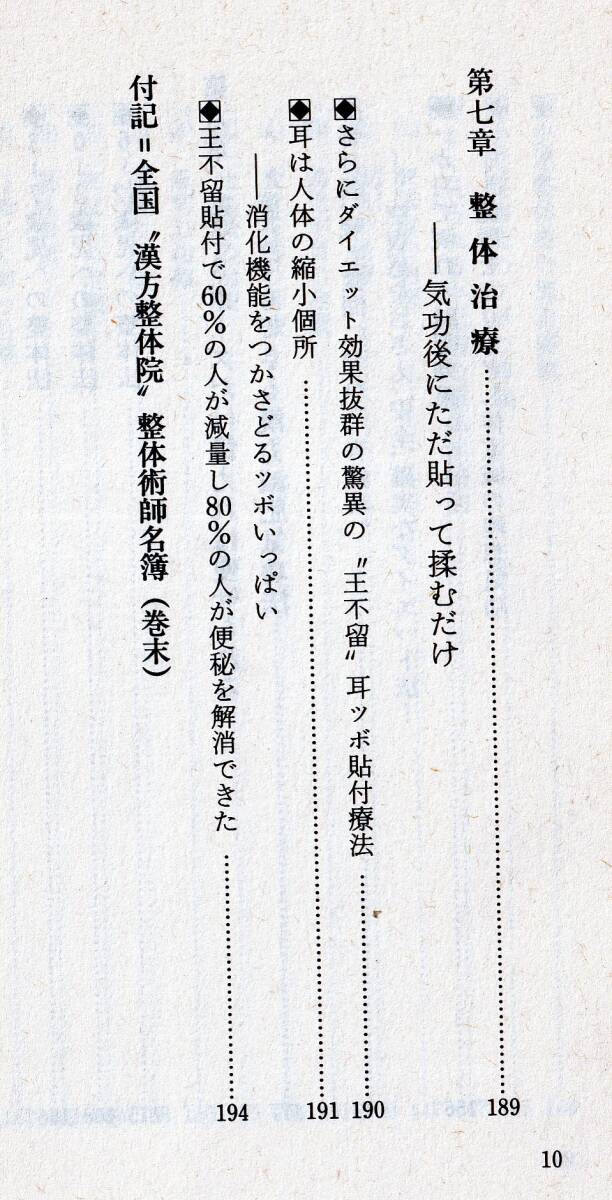 第七章　整体治療……189
――気功後にただ貼って揉むだけ
◆さらにダイエット効果抜群の驚異の〝王不留〟耳ツボ貼付療法……190
◆耳は人体の縮小個所……191
――消化機能をつかさどるツボいっぱい
◆王不留貼付で60％の人が減量し80％の人が便秘を解消できた……194
付記＝全国〝漢方整体院〟整体術師名簿（巻末）
10